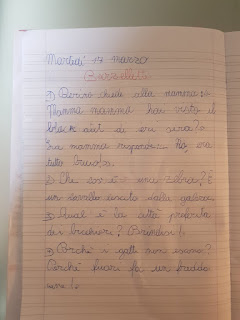 Martedì 17 marzo
Barzellette
1) Pierino chiede alla mamma:
Mamma mamma hai visto il
black out di ieri sera?
La mamma risponde: No, era
tutto buio!
2) Che cos'è una zebra? È
un cavallo uscito dalla galera.
3) Qual è la città preferita
dei bicchieri? Brindisi!
3) Perché i gatti non escono?
Perché fuori fa un freddo